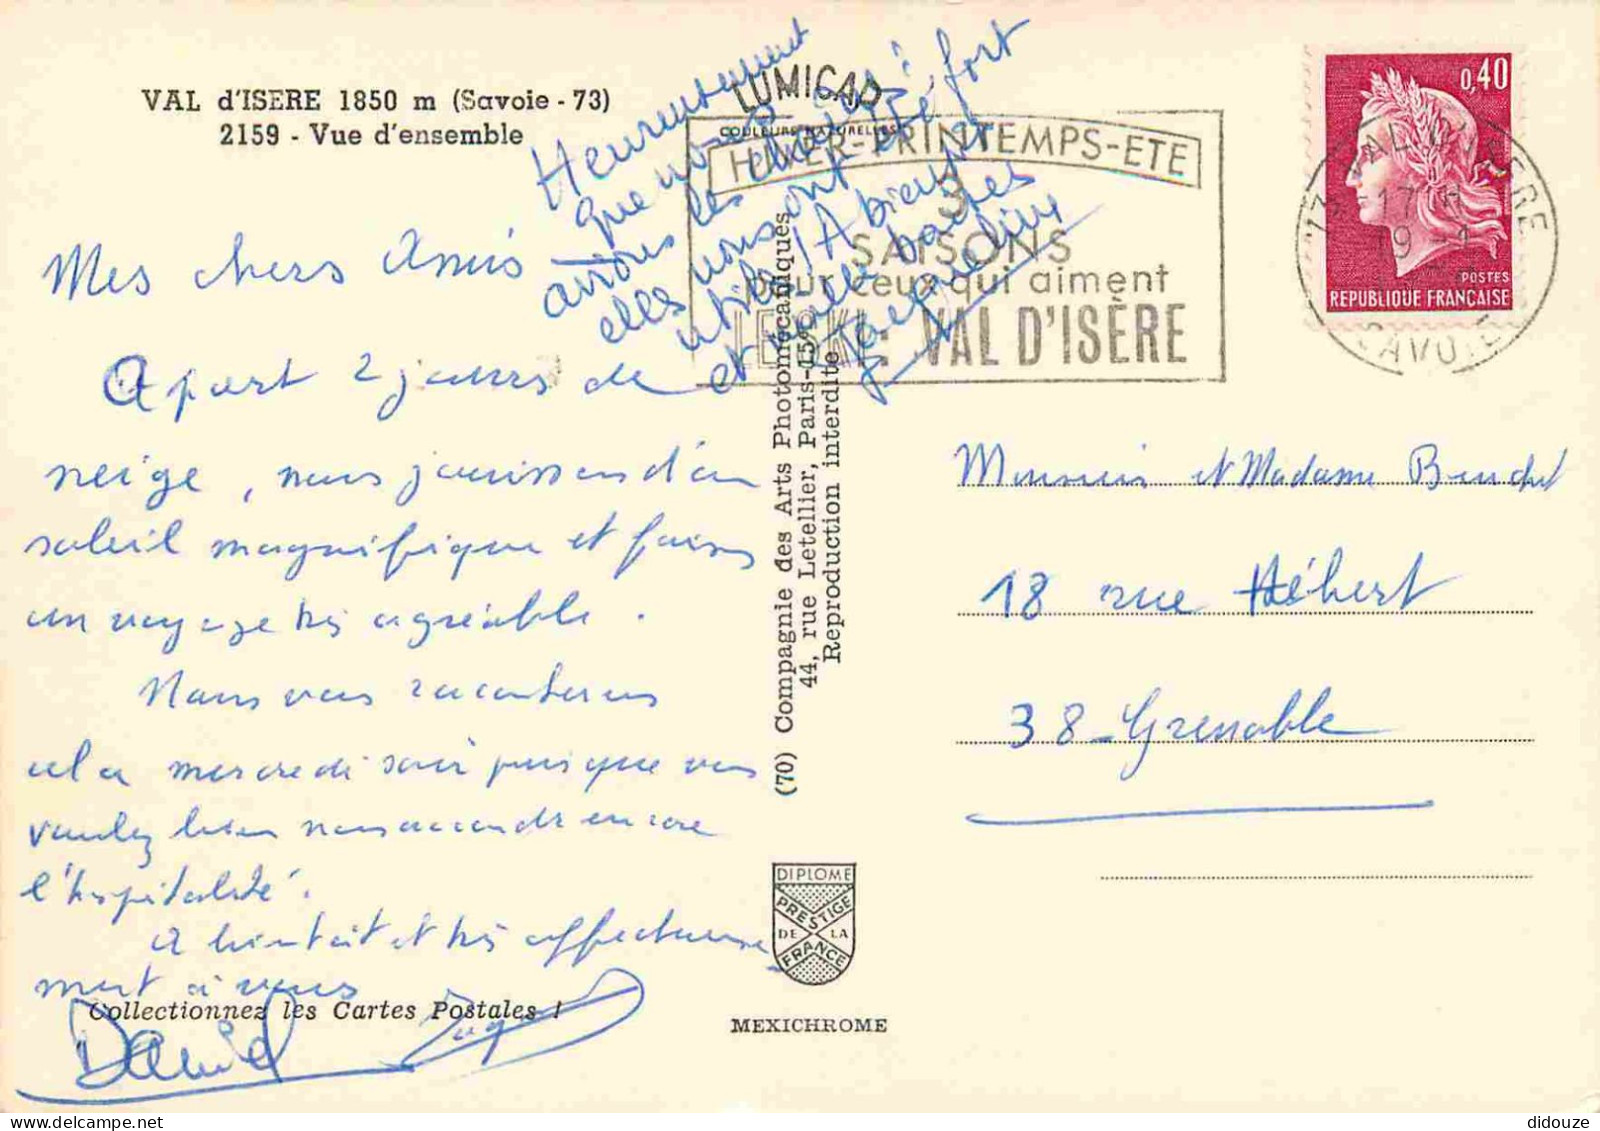 VAL d'ISERE 1850 m (Savoie - 73)
2159 - Vue d'ensemble
Mes chers Amis
Apart 2 jours de
neige, nous jouissons d'un
soleil magnifique et faisons
un voyage très agréable.
Nous vous raconterons
cela mercredi soir puisque vous
voulez bien nous accorder encore
l'hospitalité.
A bientôt et très affectueuse
ment à vous
Daniel
Collectionnez les Cartes Postales !
Heureusement
que nous
avions les chaînes :
elles nous ont été fort
utiles ! A bientôt
et mille
Jacqueline
LUMICAP
COULEURS NATURELLES
HIVER-PRINTEMPS-ETE
3
SAISONS
pour ceux qui aiment
LE SKI : VAL D'ISÈRE
(70) Compagnie des Arts Photomécaniques
44, rue Letellier, Paris-15e
Reproduction interdite
DIPLOME
PRESTIGE
DE LA
FRANCE
MEXICHROME
0,40
POSTES
REPUBLIQUE FRANÇAISE
73 VAL D'ISERE
17 H
19 -1
SAVOIE
Monsieur et Madame
18 rue Hébert
38 - Grenoble
didouze @ delcampe.net